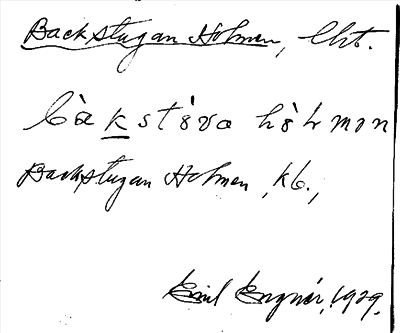 Backstugan Holmen, lht.
bàkstòva hòlmon
Backstugan Holmen, kb.,
Emil Engnér, 1929.